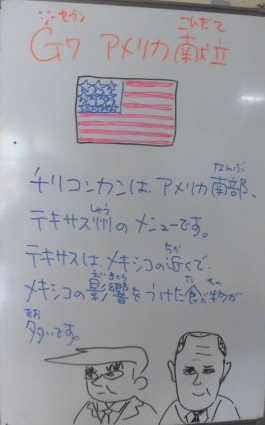 ジーセブン こんだて
G7 アメリカ献立
なんぶ
チリコンカンは、アメリカ南部、
しゅう
テキサス州のメニューです。
ちか
テキサスは、メキシコの近くで、
えいきょう た もの
メキシコの影響をうけた食べ物が
おお
多いです。